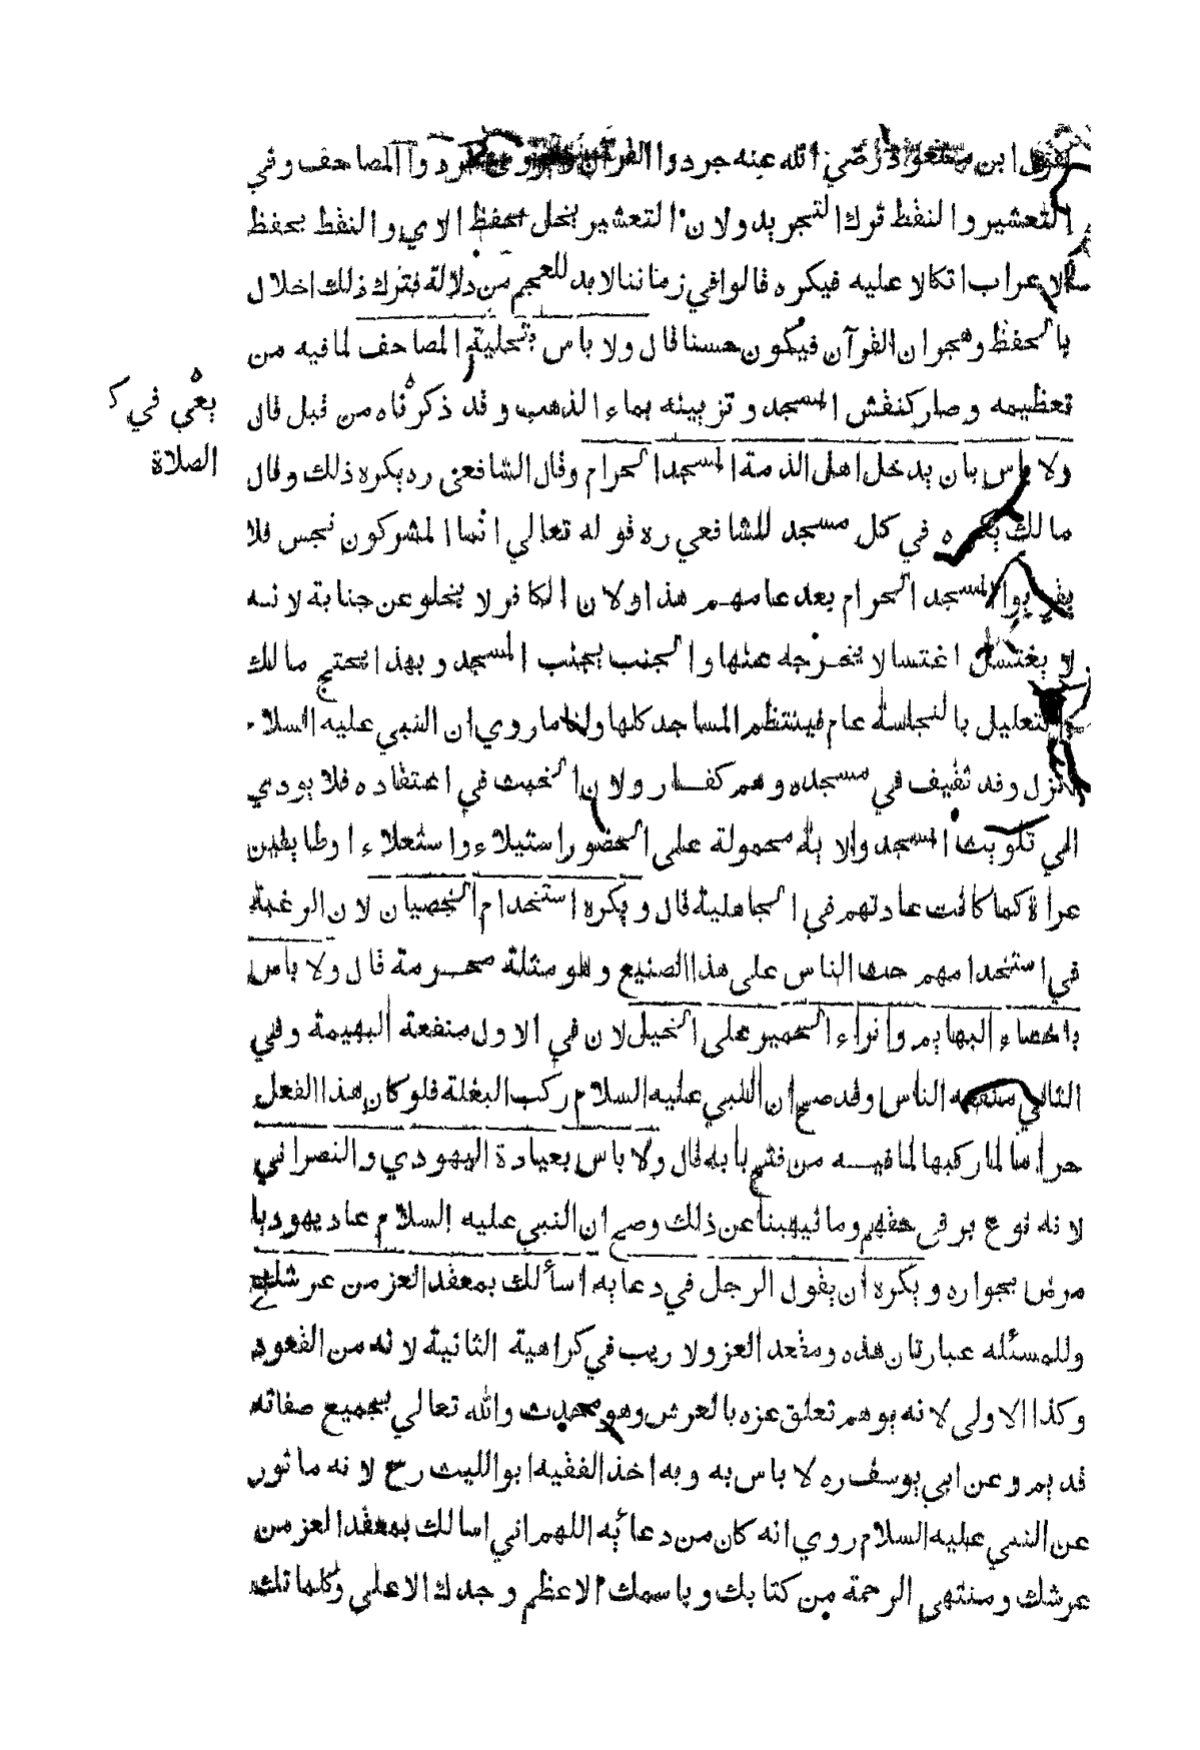 لقول ابن مسعود رضي الله عنه جردوا القرآن ويروى جردوا المصاحف وفي
التعشير والنقط ترك التجريد ولان التعشير يخل بحفظ الاي والنقط بحفظ
الاعراب اتكالا عليه فيكره قالوا في زماننا لابد للعجم من دلالة فترك ذلك اخلال
بالحفظ وهجران القرآن فيكون حسنا قال ولا باس بتحلية المصاحف لما فيه من
تعظيمه وصار كنقش المسجد وتزيينه بماء الذهب وقد ذكرناه من قبل قال
ولا باس بان يدخل اهل الذمة المسجد الحرام وقال الشافعي ره يكره ذلك وقال
مالك يكره في كل مسجد للشافعي ره قوله تعالي انما المشركون نجس فلا
يقربوا المسجد الحرام بعد عامهم هذا ولان الكافر لا يخلو عن جنابة لانه
لا يغتسل اغتسالا يخرجه عنها والجنب يجنب المسجد وبهذا يحتج مالك
والتعليل بالنجاسة عام فينتظم المساجد كلها ولنا ما روي ان النبي عليه السلام
انزل وفد ثقيف في مسجده وهم كفار ولان الخبث في اعتقاده فلا يودي
الي تلويث المسجد والاية محمولة على الحضور استيلاء واستعلاء او طايفين
عراة كما كانت عادتهم في الجاهلية قال ويكره استخدام الخصيان لان الرغبة
في استخدامهم حث الناس على هذا الصنيع وهو مثلة محرمة قال ولا باس
باخصاء البهايم وانزاء الحمير على الخيل لان في الاول منفعة البهيمة وفي
الثاني منفعة الناس وقد صح ان النبي عليه السلام ركب البغلة فلو كان هذا الفعل
حراما لما ركبها لما فيه من فتح بابه قال ولا باس بعيادة اليهودي والنصراني
لانه نوع بر في حقهم وما نيهبنا عن ذلك وصح ان النبي عليه السلام عاد يهوديا
مرض بجواره ويكره ان يقول الرجل في دعايه اسألك بمعقد العز من عرشك
وللمسئله عبارتان هذه ومقعد العز ولا ريب في كراهية الثانية لانه من القعود
وكذا الاولى لانه يوهم تعلق عزه بالعرش وهو محدث والله تعالي بجميع صفاته
قديم وعن ابي يوسف ره لا باس به وبه اخذ الفقيه ابو الليث رح لانه ماثور
عن النبي عليه السلام روي انه كان من دعائه اللهم اني اسالك بمعقد العز من
عرشك ومنتهى الرحمة من كتابك وباسمك الاعظم وجدك الاعلي وكلماتك
يعني في ك
الصلاة